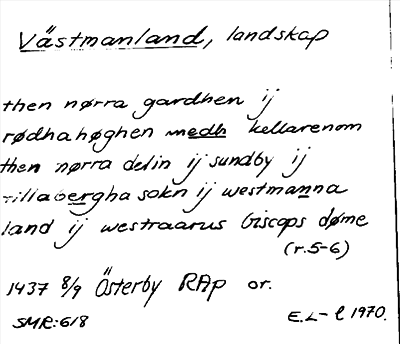 Västmanland, landskap
then nørra gardhen ij
rødhahøghen medh kellarenom
then nørra delin ij sundby ij
tillabergha sokn ij westmanna
land ij westraarus biscops døme
(r.5-6)
1437 8/9 Österby RAp or.
SMR:618 E.L-l 1970.